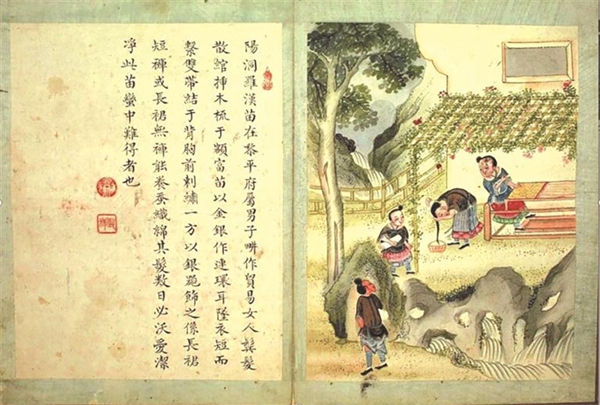 陽洞羅漢苗在黎平府屬男子畊作貿易女人髮
散綰插木梳于額富苗以金銀作連環耳墜衣短而
繫雙帶結于背胸前刺繡一方以銀飾之長裙
短褲或長裙無褲能養蚕織綿其髮数日必沃愛潔
淨此苗蠻中難得者也